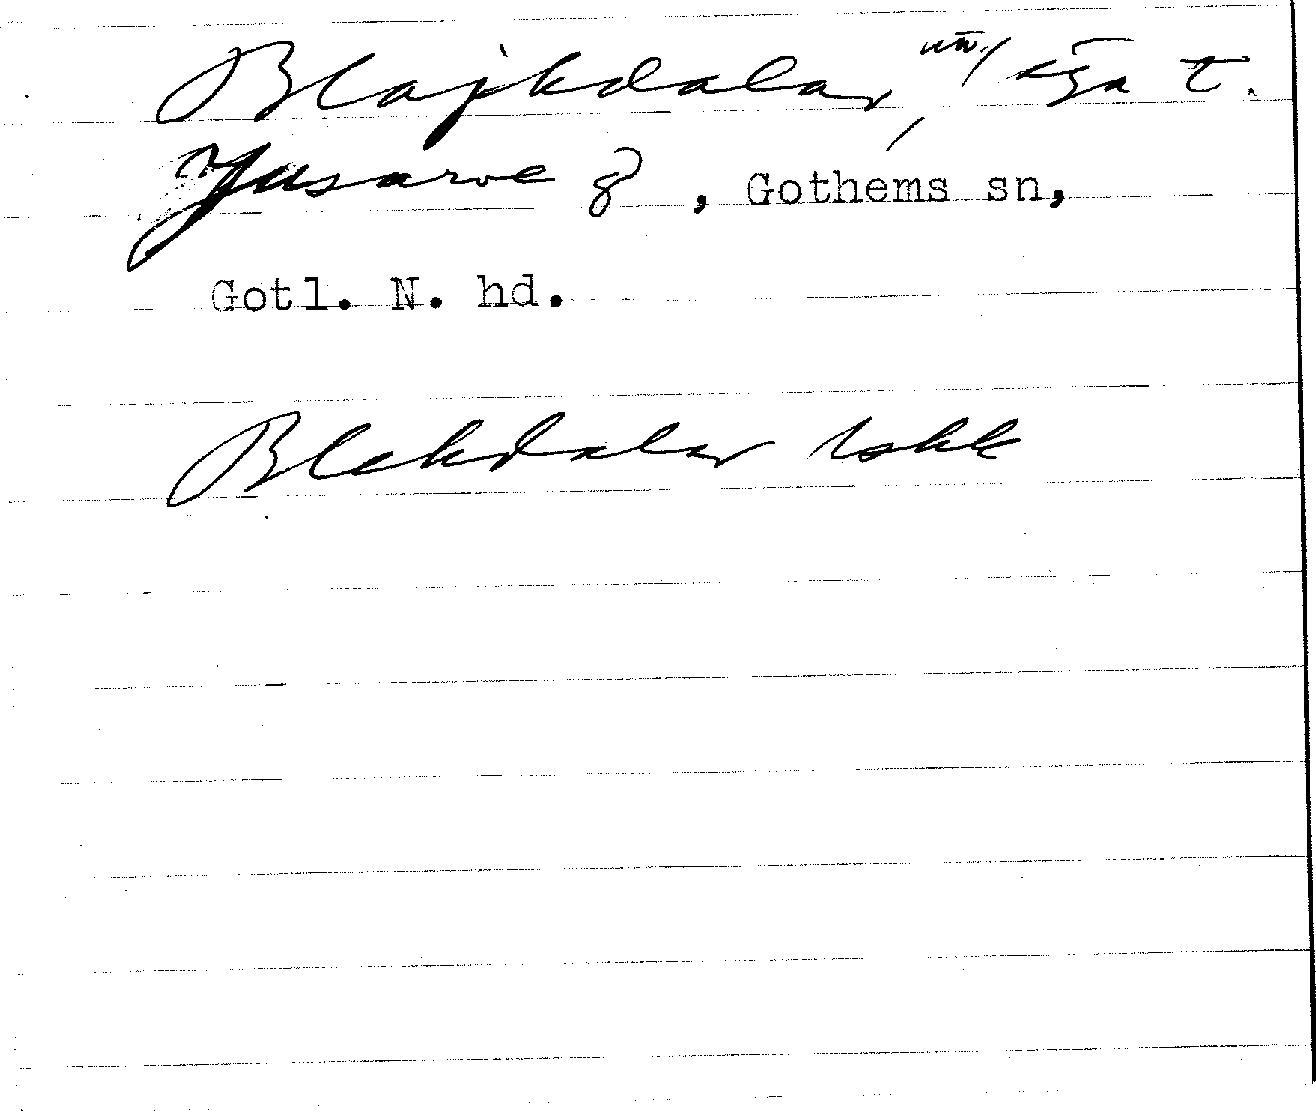 Blajkdalar, un./ äga t.
Gusarve g, Gothems sn,
Gotl. N. hd.
Blekdalar